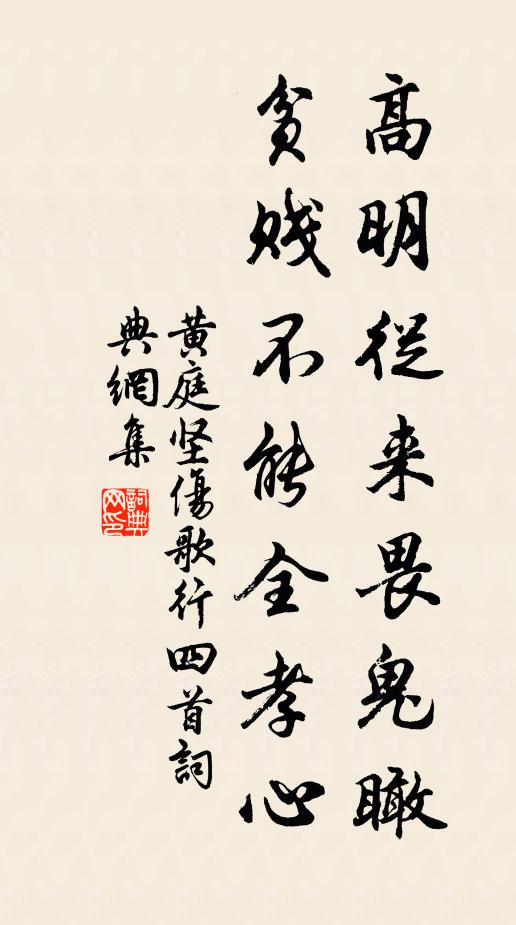 高明從来畏鬼瞰
貧賤不能全孝心
黃庭坚傷歌行四首詞
典網集
詞典
网印